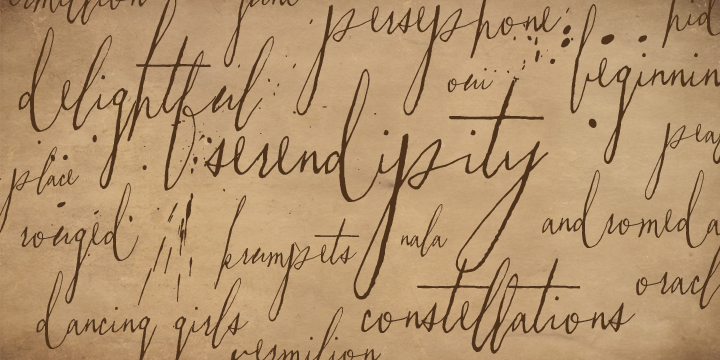 vermillion june persephone hid
delightful oui beginnin
serendipity pea
place
rouged krumpets nala andromeda
dancing girls constellations oracl
vermilion